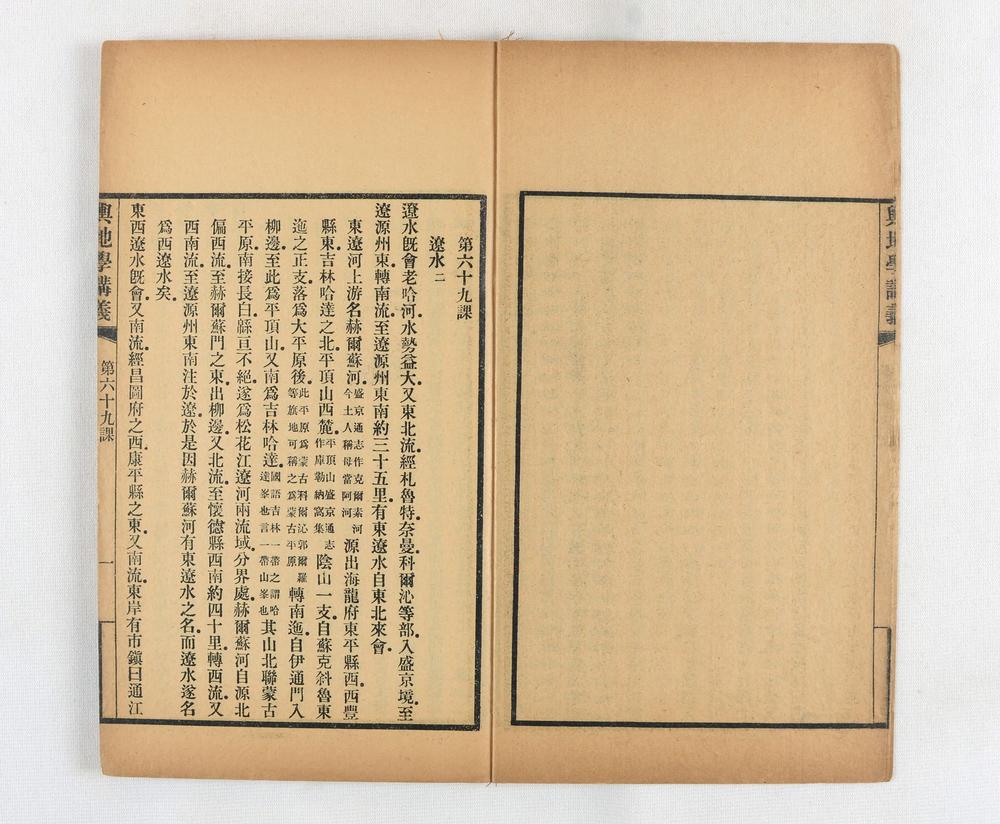 輿地學講義
第六十九課
遼水二
遼水旣會老哈河水勢益大又東北流經札魯特奈曼科爾沁等部入盛京境至
遼源州東轉南流至遼源州東南約三十五里有東遼水自東北來會
東遼河上游名赫爾蘇河盛京通志作克爾素河今土人稱母當阿河源出海龍府東平縣西西豐
縣東吉林哈達之北平頂山西麓平頂山盛京通志作庫勒納窩集陰山一支自蘇克斜魯東
迤之正支落爲大平原後此平原爲蒙古科爾沁郭爾羅等旗地可稱之爲蒙古平原轉南迤自伊通門入
柳邊至此爲平頂山又南爲吉林哈達國語吉林一帶之謂哈達峯也言一帶山峯也其山北聯蒙古
平原南接長白緜亘不絕遂爲松花江遼河兩流域分界處赫爾蘇河自源北
偏西流至赫爾蘇門之東出柳邊又北流至懷德縣西南約四十里轉西流又
西南流至遼源州東南注於遼於是因赫爾蘇河有東遼水之名而遼水遂名
爲西遼水矣
東西遼水旣會又南流經昌圖府之西康平縣之東又南流東岸有市鎭曰通江
輿地學講義
第六十九課
一